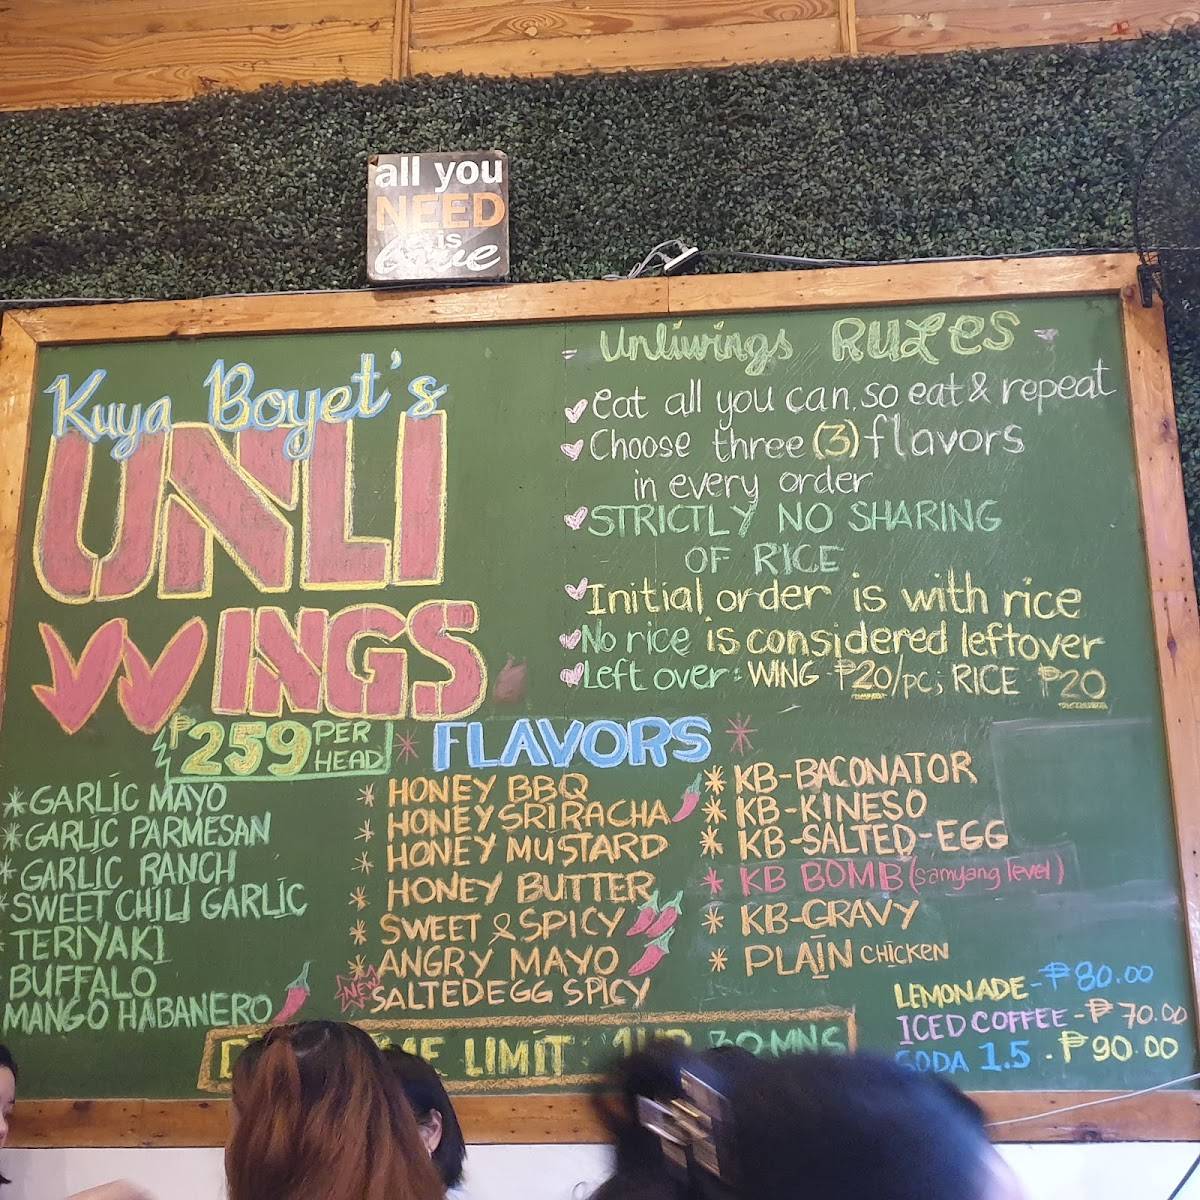 all you
NEED
is
love
Kuya Boyet's
UNLI
WINGS
₱259 PER
HEAD
Unliwings RULES
eat all you can, so eat & repeat
Choose three (3) flavors
in every order
STRICTLY NO SHARING
OF RICE
Initial order is with rice
No rice is considered leftover
Left over: WING ₱20/pc; RICE ₱20
FLAVORS
* GARLIC MAYO
* GARLIC PARMESAN
* GARLIC RANCH
* SWEET CHILI GARLIC
* TERIYAKI
BUFFALO
MANGO HABANERO
* HONEY BBQ
* HONEY SRIRACHA
* HONEY MUSTARD
* HONEY BUTTER
* SWEET & SPICY
* ANGRY MAYO
NEW SALTED EGG SPICY
* KB-BACONATOR
* KB-KINESO
* KB-SALTED-EGG
* KB BOMB (samyang level)
* KB-GRAVY
* PLAIN CHICKEN
LEMONADE - ₱80.00
ICED COFFEE - ₱70.00
SODA 1.5 - ₱90.00
LIMIT 1HR 30MNS